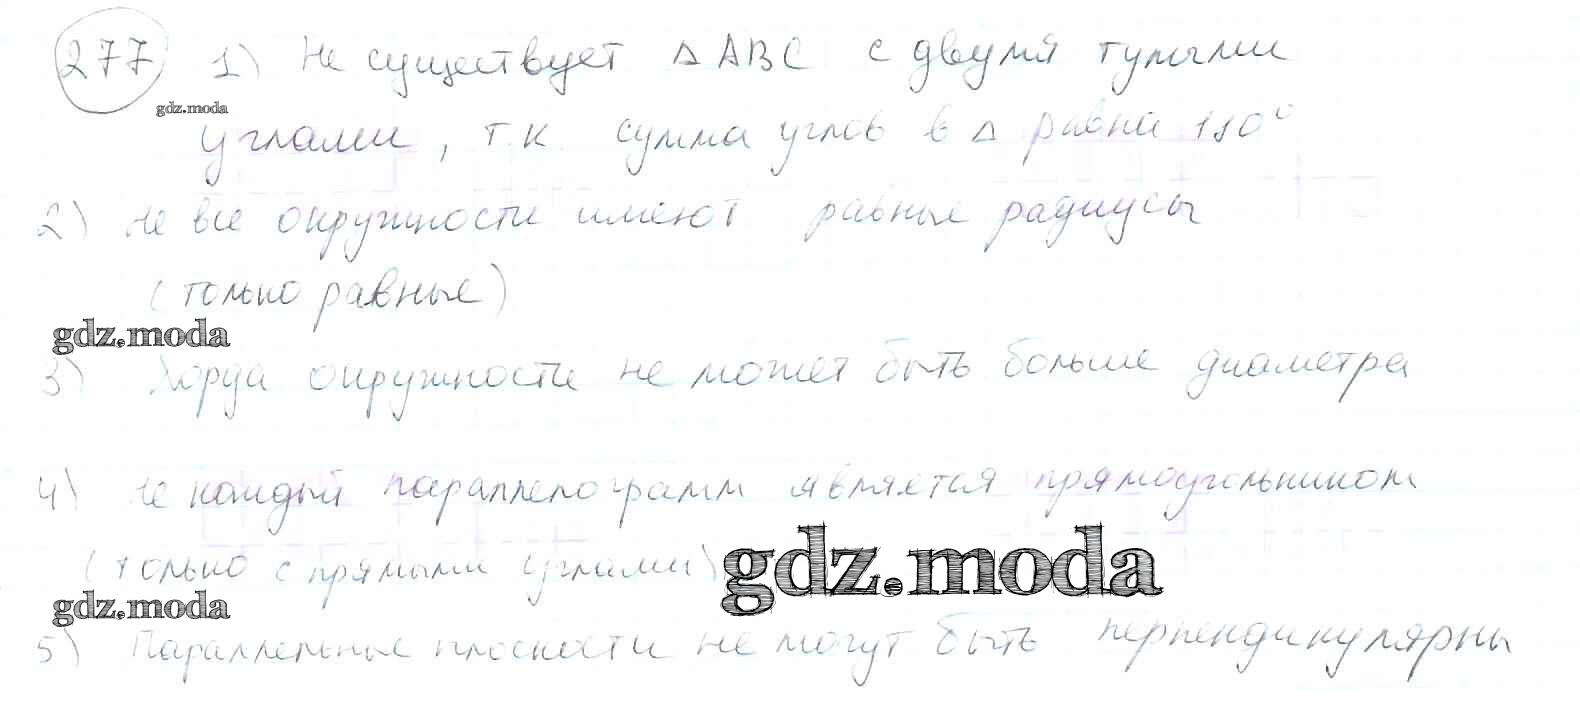 277 1) Не существует △ ABC с двумя тупыми
gdz.moda
углами, т.к. сумма углов в △ равна 180°
2) Не все окружности имеют равные радиусы
(только равные)
gdz.moda
3) Хорда окружности не может быть больше диаметра
4) Не каждый параллелограмм является прямоугольником
(только с прямыми углами)
gdz.moda
gdz.moda
5) Параллельные плоскости не могут быть перпендикулярны